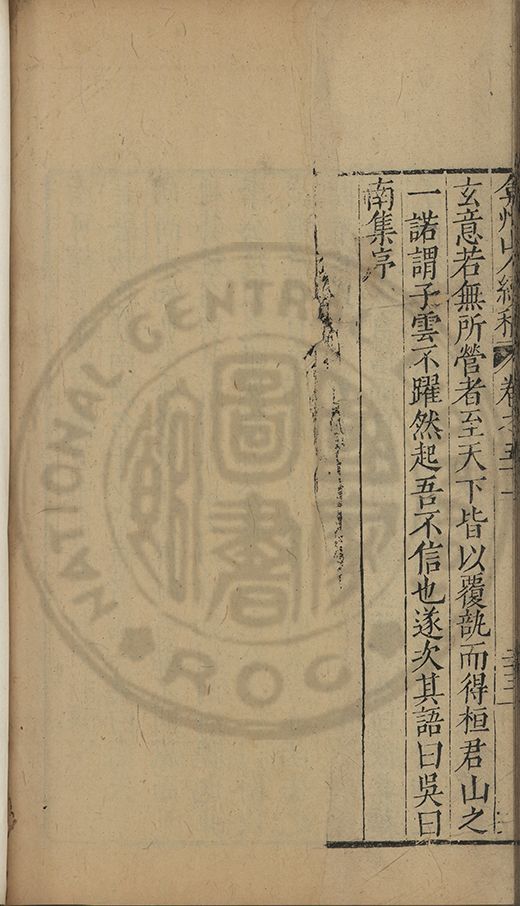 弇州山人續稿 卷之五十
玄意若無所營者至天下皆以覆瓿而得桓君山之
一諾謂子雲不躍然起吾不信也遂次其語曰吳曰
南集序
NATIONAL CENTRAL
圖書
ROC